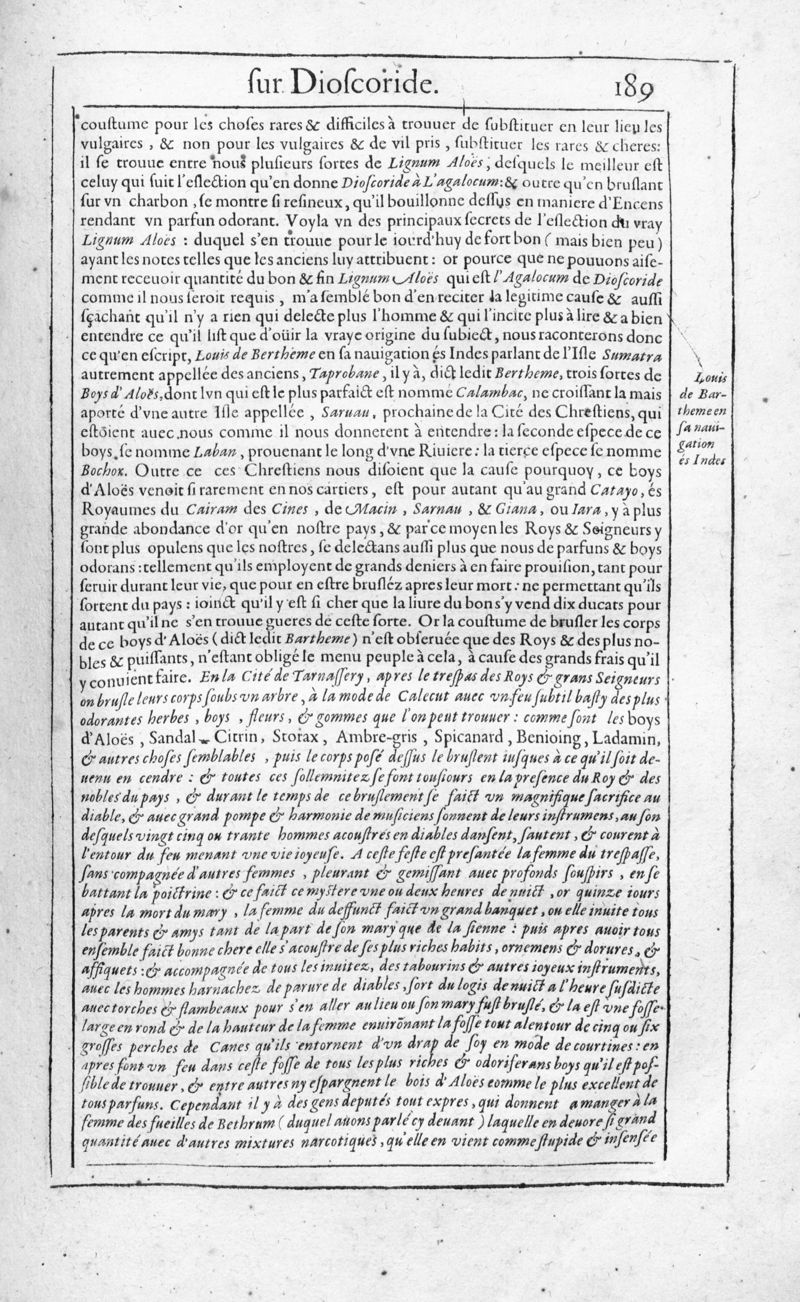 ſur Dioſcoride. 189
couſtume pour les choſes rares & difficiles à trouuer de ſubſtituer en leur lieu les
vulgaires , & non pour les vulgaires & de vil pris , ſubſtituer les rares & cheres:
il ſe trouue entre nous pluſieurs ſortes de Lignum Aloës, deſquels le meilleur eſt
celuy qui ſuit l'eſlection qu'en donne Dioſcoride à L'agalocum: & outre qu'en bruſlant
ſur vn charbon , ſe montre ſi reſineux, qu'il bouillonne deſſus en maniere d'Encens
rendant vn parfun odorant. Voyla vn des principaux ſecrets de l'eſlection du vray
Lignum Aloës : duquel s'en trouue pour le iourd'huy de fort bon ( mais bien peu )
ayant les notes telles que les anciens luy attribuent : or pource que ne pouuons aiſe-
ment receuoir quantité du bon & fin Lignum Aloës qui eſt l'Agalocum de Dioſcoride
comme il nous ſeroit requis , m'a ſemblé bon d'en reciter la legitime cauſe & auſſi
ſçachant qu'il n'y a rien qui delecte plus l'homme & qui l'incite plus à lire & a bien
entendre ce qu'il liſt que d'oüir la vraye origine du ſubiect, nous raconterons donc
ce qu'en eſcript, Louis de Bertheme en ſa nauigation és Indes parlant de l'Iſle Sumatra
autrement appellée des anciens, Taprobane, il y à, dict ledit Bertheme, trois ſortes de
Boys d'Aloës, dont lvn qui eſt le plus parfaict eſt nommé Calambac, ne croiſſant la mais
aporté d'vne autre Iſle appellée , Saruau, prochaine de la Cité des Chreſtiens, qui
eſtoient auec nous comme il nous donnerent à entendre : la ſeconde eſpece de ce
boys ſe nomme Laban, prouenant le long d'vne Riuiere : la tierçe eſpece ſe nomme
Bochox. Outre ce ces Chreſtiens nous diſoient que la cauſe pourquoy, ce boys
d'Aloës venoit ſi rarement en nos cartiers, eſt pour autant qu'au grand Catayo, és
Royaumes du Cairam des Cines , de Macin , Sarnau , & Giana, ou Iara, y à plus
grande abondance d'or qu'en noſtre pays, & par ce moyen les Roys & Seigneurs y
ſont plus opulens que les noſtres, ſe delectans auſſi plus que nous de parfuns & boys
odorans : tellement qu'ils employent de grands deniers à en faire prouiſion, tant pour
ſeruir durant leur vie, que pour en eſtre bruſléz apres leur mort : ne permettant qu'ils
ſortent du pays : ioinct qu'il y eſt ſi cher que la liure du bon s'y vend dix ducats pour
autant qu'il ne s'en trouue gueres de ceſte ſorte. Or la couſtume de bruſler les corps
de ce boys d'Aloës ( dict ledit Bartheme ) n'eſt obſeruée que des Roys & des plus no-
bles & puiſſants, n'eſtant obligé le menu peuple à cela, à cauſe des grands frais qu'il
y conuient faire. En la Cité de Tarnaſſery, apres le treſpas des Roys & grans Seigneurs
on bruſle leurs corps ſoubs vn arbre, à la mode de Calecut auec vn feu ſubtil baſty des plus
odorantes herbes , boys , fleurs, & gommes que l'on peut trouuer : comme ſont les boys
d'Aloës, Sandal Citrin, Storax, Ambre-gris, Spicanard, Benioing, Ladamin,
& autres choſes ſemblables , puis le corps poſé deſſus le bruſlent iuſques à ce qu'il ſoit de-
uenu en cendre : & toutes ces ſollemnitez ſe font touſiours en la preſence du Roy & des
nobles du pays , & durant le temps de ce bruſlement ſe faict vn magnifique ſacrifice au
diable, & auec grand pompe & harmonie de muſiciens ſonnent de leurs inſtrumens, au ſon
deſquels vingt cinq ou trante hommes acouſtrés en diables danſent, ſautent, & courent à
l'entour du feu menant vne vie ioyeuſe. A ceſte feſte eſt preſantée la femme du treſpaſſe,
ſans compagnée d'autres femmes , pleurant & gemiſſant auec profonds ſouſpirs , en ſe
battant la poictrine : & ce faict ce myſtere vne ou deux heures de nuict , or quinze iours
apres la mort du mary , la femme du deffunct faict vn grand banquet, ou elle inuite tous
les parents & amys tant de la part de ſon mary que de la ſienne : puis apres auoir tous
enſemble faict bonne chere elle s'acouſtre de ſes plus riches habits, ornemens & dorures, &
affiquets : & accompagnée de tous les inuitez, des tabourins & autres ioyeux inſtruments,
auec les hommes harnachez de parure de diables, ſort du logis de nuict a l'heure ſuſdicte
auec torches & flambeaux pour s'en aller au lieu ou ſon mary fuſt bruſlé, & la eſt vne foſſe
large en rond & de la hauteur de la femme enuirõnant la foſſe tout alentour de cinq ou ſix
groſſes perches de Canes qu'ils entornent d'vn drap de ſoy en mode de courtines : en
apres font vn feu dans ceſte foſſe de tous les plus riches & odoriferans boys qu'il eſt poſ-
ſible de trouuer, & entre autres ny eſpargnent le bois d'Aloës comme le plus excellent de
tous parfuns. Cependant il y à des gens deputés tout expres, qui donnent a manger à la
femme des fueilles de Bethrum ( duquel auons parlé cy deuant ) laquelle en deuore ſi grand
quantité auec d'autres mixtures narcotiques, qu'elle en vient comme ſtupide & inſenſée
Louis
de Bar-
theme en
ſa naui-
gation
és Indes